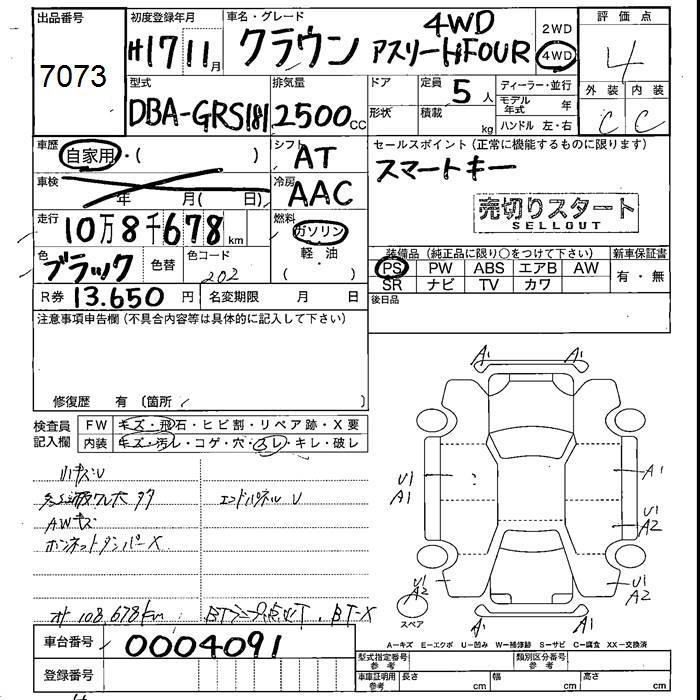 出品番号
7073
初度登録年月
H17 11月
車名・グレード
クラウン アスリートiFOUR 4WD
2WD
4WD
評価点
4
外装 内装
C C
型式
DBA-GRS181
排気量
2500cc
ドア
形状
定員 5人
積載 kg
ディーラー・並行
モデル年式 年
ハンドル 左・右
車歴
自家用・( )
シフト
AT
セールスポイント(正常に機能するものに限ります)
スマートキー
車検
年 月( 日)
冷房
AAC
売切りスタート
SELLOUT
走行
10万8千678km
燃料
ガソリン
軽・油
色
ブラック
色替
色コード
202
装備品(純正品に限り○をつけて下さい)
新車保証書
PS PW ABS エアB AW
SR ナビ TV カワ
有・無
R券 13.650円
名変期限 月 日
後日品
注意事項申告欄(不具合内容等は具体的に記入して下さい)
修復歴 有 (箇所
検査員記入欄
FW キズ・飛石・ヒビ割・リペア跡・X要
内装 キズ・汚レ・コゲ・穴・スレ・キレ・破レ
小キズU
エンドパネルU
AWキズ
ボンネットダンパーX
108,678km
BT-X
A1 A1
U1
A1
A1
U1
A2
U1
A2
U1
A2
A1 A1
スペア
A-キズ E-エクボ U-凹み W-補修跡 S-サビ C-腐食 XX-交換済
車台番号
0004091
登録番号
型式指定番号 参考
類別区分番号 参考
車庫証明用 参考
長さ cm
幅 cm
高さ cm